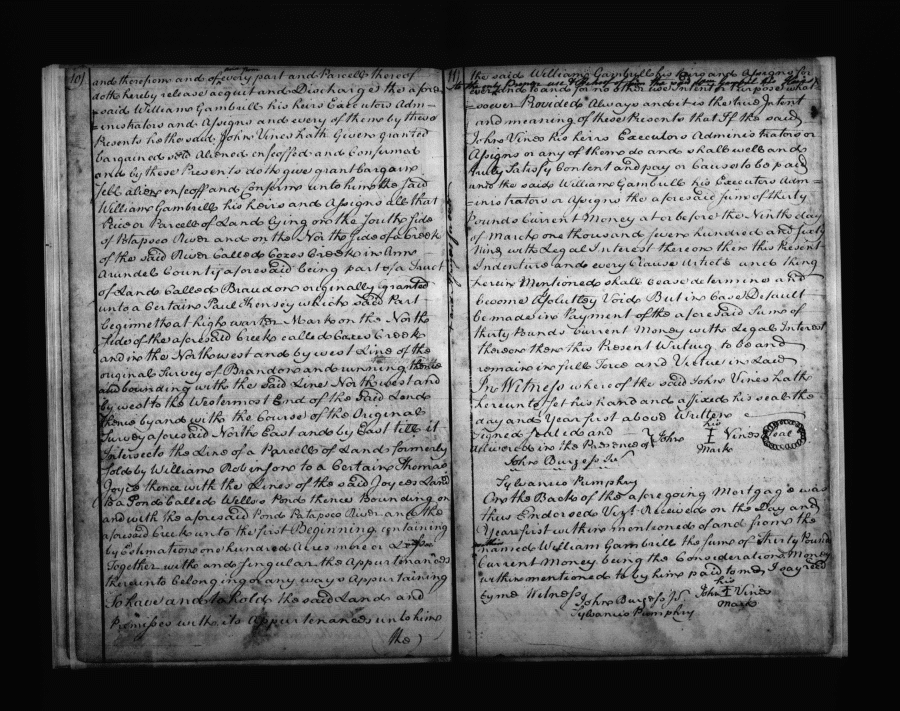 101
and therefrom and of every part and Parcell thereof
doth hereby release acquit and Discharge the afore
=said William Gambrill his heirs Executors Adm=
=inistrators and Assigns and every of them by these
Presents he the said John Vines hath Given granted
bargained sold Aliened enfeoffed and Confirmed
and by these Presents doth give grant bargain
Sell alien enfeoff and Confirm unto him the said
William Gambrill his heirs and Assigns all that
Peice or Parcel of Land Lying on the South side
of Patapsco River and on the North side of a Creek
of the said River Called Coxes Creek in Ann
Arundel County aforesaid being part of a Tract
of Land Called Brandon originally granted
unto a Certain Paul Kensey which said Part
beginneth at high warter Mark on the North
side of the aforesaid Creek called Coxes Creek
and in the Northwest and by west Line of the
original Survey of Brandon and running thence
and bounding with the said Line Northwest and
by west to the Westermost End of the said Land
thence by and with the Course of the Original
Survey aforesaid North East and by East till it
Intersects the Line of a Parcell of Land formerly
sold by William Robinson to a Certain Thomas
Joyce thence with the Lines of the said Joyces Land
to a Pond Called Wells Pond thence Bounding on
and with the aforesaid Pond Patapsco River and the
aforesaid Creek unto the first Beginning containing
by Estimation one hundred Acres more or Less
Together with and singular the Appurtenances
thereunto belonging or any ways Appurtaining
To have and to hold the said Land and
Premisses with its Appurtenances unto him
(the)
the said William Gambrill his heirs and Assigns for
and to and for no other use Intent or Purpose what
=soever Provided Always and it is the true Intent
and meaning of these Presents that If the said
John Vines his heirs Executors Administrators or
Assigns or any of them do and shall well and
truly Satisfy Content and pay or Cause to be paid
unto the said William Gambrill his Executors Adm=
=inistrators or Assigns the aforesaid sum of thirty
Pounds Current Money at or before the Ninth day
of March one thousand seven hundred and sixty
Nine with Legal Interest thereon then this Present
Indenture and every Clause Article and thing
herein Mentioned shall cease determine and
become Absolutley Void But in Case Default
be made in Payment of the aforesaid Sum of
thirty Pounds Current Money with Legal Interest
thereon then this Present Writing to be and
remain in full Force and Virtue in Law
In Witness whereof the said John Vines hath
hereunto set his hand and affixed his seal the
day and Year first above Written
Signed sealed and
his
John I Vines Seal
delivered in the Presence of
Mark
John Burgess Jr
Sylvanus Pumphry
On the Back of the aforegoing Mortgage was
thus Endorsed Vizt. Received on the Day and
Year first within mentioned of and from the
named William Gambrill the sum of thirty Pounds
Current Money being the Consideration Money
within mentioned to by him paid to me I say recd
by me Witness
his
John Burgess Jr John I Vines
Mark
Sylvanus Pumphry